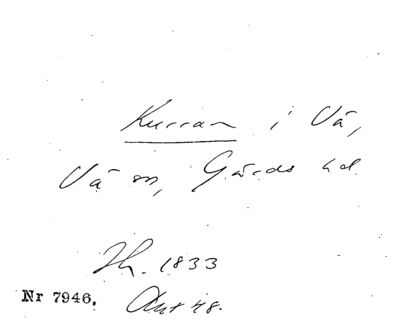 Kurran i Vä,
Vä sn, Gärds hd
Th. 1833
Nr 7946. Akt 48.